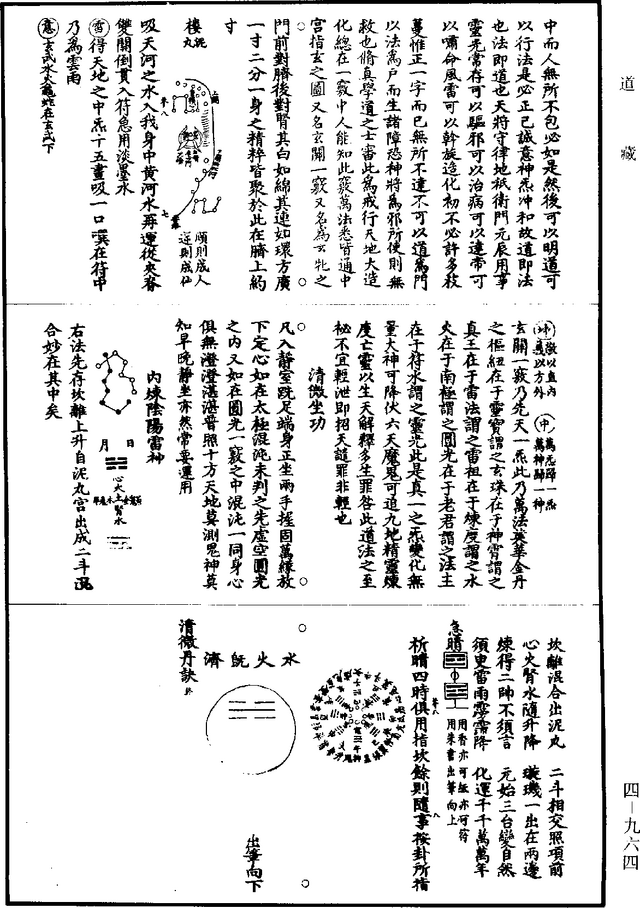 道藏
中而人無所不包必如是然後可以明道可
以行法是必正已誠意神炁冲和故道即法
也法即道也天將守律地祇衛門元辰用事
靈光常存可以驅邪可以治病可以達帝可
以嘯命風雷可以斡旋造化初不必許多枝
蔓惟正一字而已無所不達不可以道爲門
以法爲戶而生諸障恐神將爲邪所使則無
救也脩真學道之士審此爲戒行天地大造
化總在一竅中人能知此竅萬法悉皆通中
宮指玄之圖又名玄關一竅又名爲玄牝之
門前對臍後對腎其白如綿其連如環方廣
一寸二分一身之精粹皆聚於此在臍上約
寸
順則成人
逆則成仙
吸天河之水入我身中黃河水再運從夾脊
雙關倒貫入符急用淡墨水
雪得天地之中炁十五畫吸一口噀在符中
乃爲雲雨
意玄武水火龜蛇在玄武下
坤敬以直內
義以方外
中萬炁歸一炁
萬神歸一神
玄關一竅乃先天一炁此乃萬法英華金丹
之樞紐在于靈寶謂之玄珠在于神霄謂之
真王在于雷法謂之雷祖在于煉度謂之水
火在于南極謂之圓光在于老君謂之法主
在于符水謂之靈光此是真一之炁變化無
量大神可降伏六天魔鬼可追九地精靈煉
度亡靈以生天解釋多生罪咎此道法之至
祕不宜輕泄即招天譴罪非輕也
清微坐功
凡入靜室跣足端身正坐兩手握固萬緣放
下定心如在太極混沌未判之先虛空圓光
之內又如在圓光一竅之中混沌一同身心
俱無澄澄湛湛普照十方天地莫測鬼神莫
知早晚靜坐亦然常要運用
內煉陰陽雷神
月 日
心火
腎水
右法先存坎離上升自泥丸宮出成二斗混
合妙在其中矣
坎離混合出泥丸 二斗相交照項前
心火腎水隨升降 璇璣一出在兩邊
煉得二帥不須言 元始三台變自然
須更雷雨霶霈降 化運千千萬萬年
急晴
用香亦可紙亦可符
用朱書出筆向上
祈晴四時俱用指坎餘則隨事按卦所指
水火旣濟
出筆向下
清微丹訣 終
四－九六四